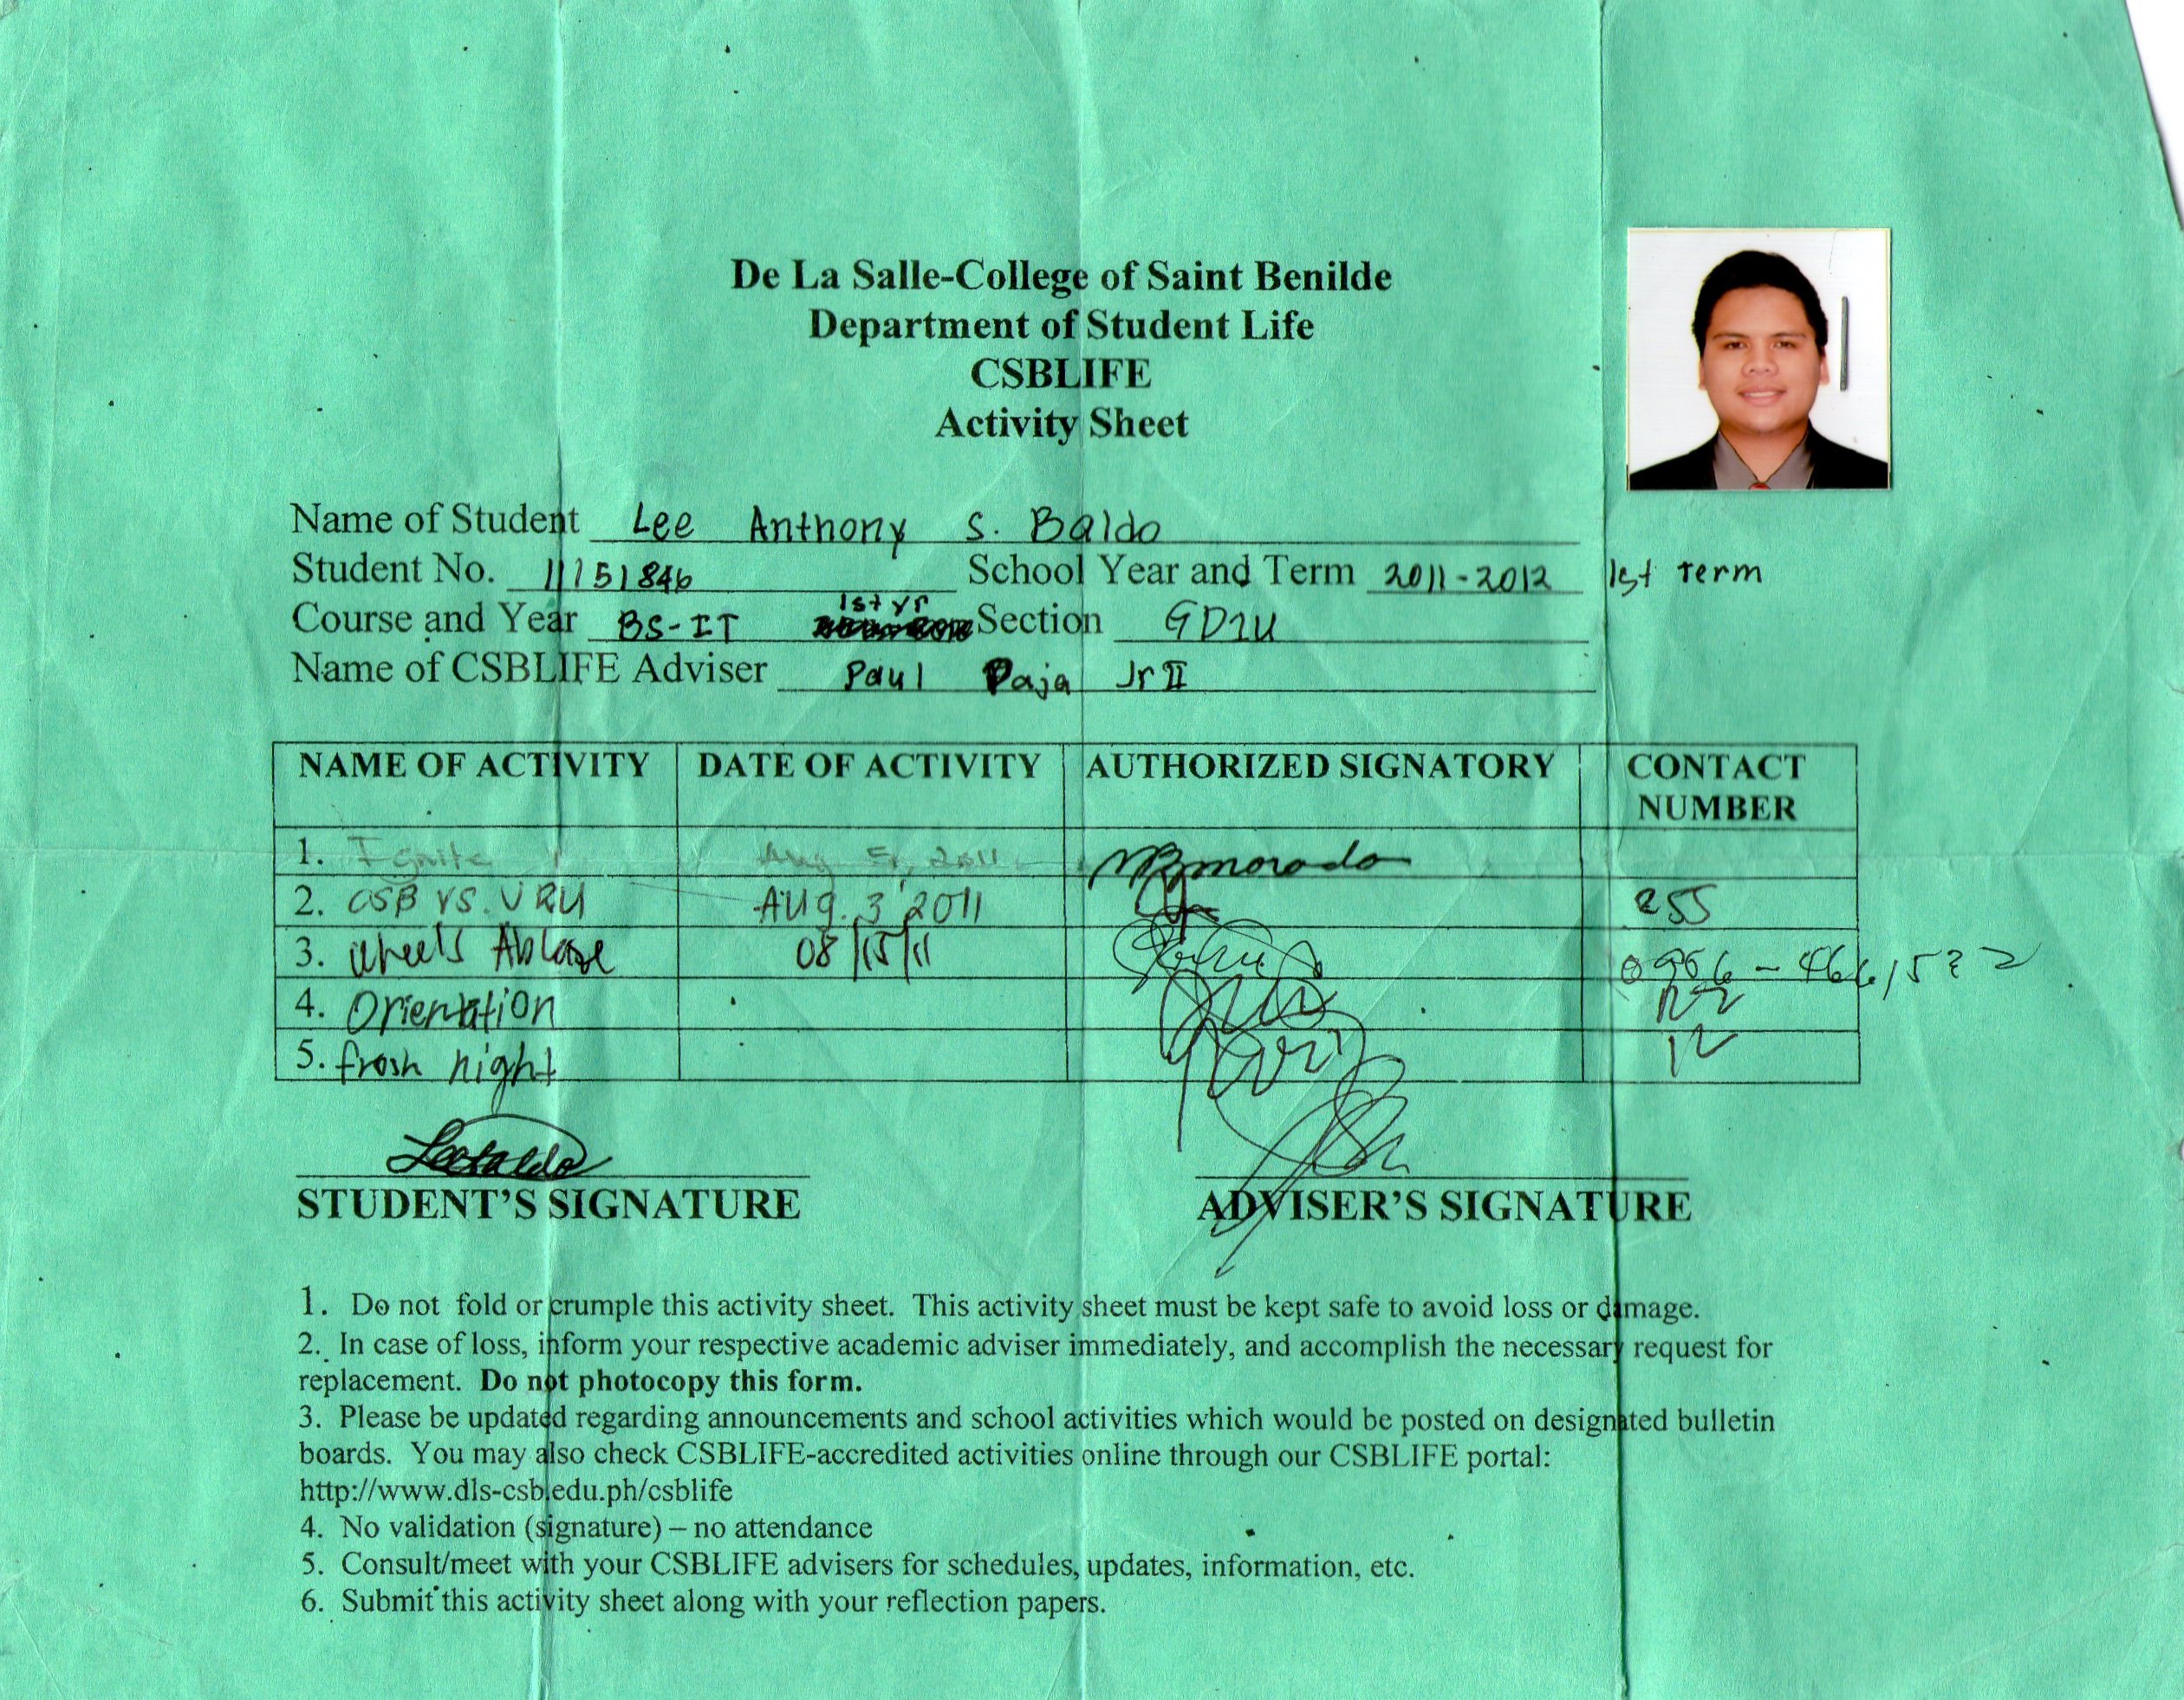 De La Salle-College of Saint Benilde
Department of Student Life
CSBLIFE
Activity Sheet
Name of Student Lee Anthony S. Baldo
Student No. 11151846 School Year and Term 2011-2012 1st term
Course and Year BS-IT 1st yr Section GD1U
Name of CSBLIFE Adviser Paul Daja Jr II
NAME OF ACTIVITY DATE OF ACTIVITY AUTHORIZED SIGNATORY CONTACT NUMBER
1. Ignite Aug 5, 2011
2. CSB VS. URU AUG. 3 2011 255
3. Wheels Ablaze 08/15/11
4. Orientation
5. frosh night
STUDENT'S SIGNATURE ADVISER'S SIGNATURE
1. Do not fold or crumple this activity sheet. This activity sheet must be kept safe to avoid loss or damage.
2. In case of loss, inform your respective academic adviser immediately, and accomplish the necessary request for
replacement. Do not photocopy this form.
3. Please be updated regarding announcements and school activities which would be posted on designated bulletin
boards. You may also check CSBLIFE-accredited activities online through our CSBLIFE portal:
http://www.dls-csb.edu.ph/csblife
4. No validation (signature) – no attendance
5. Consult/meet with your CSBLIFE advisers for schedules, updates, information, etc.
6. Submit this activity sheet along with your reflection papers.